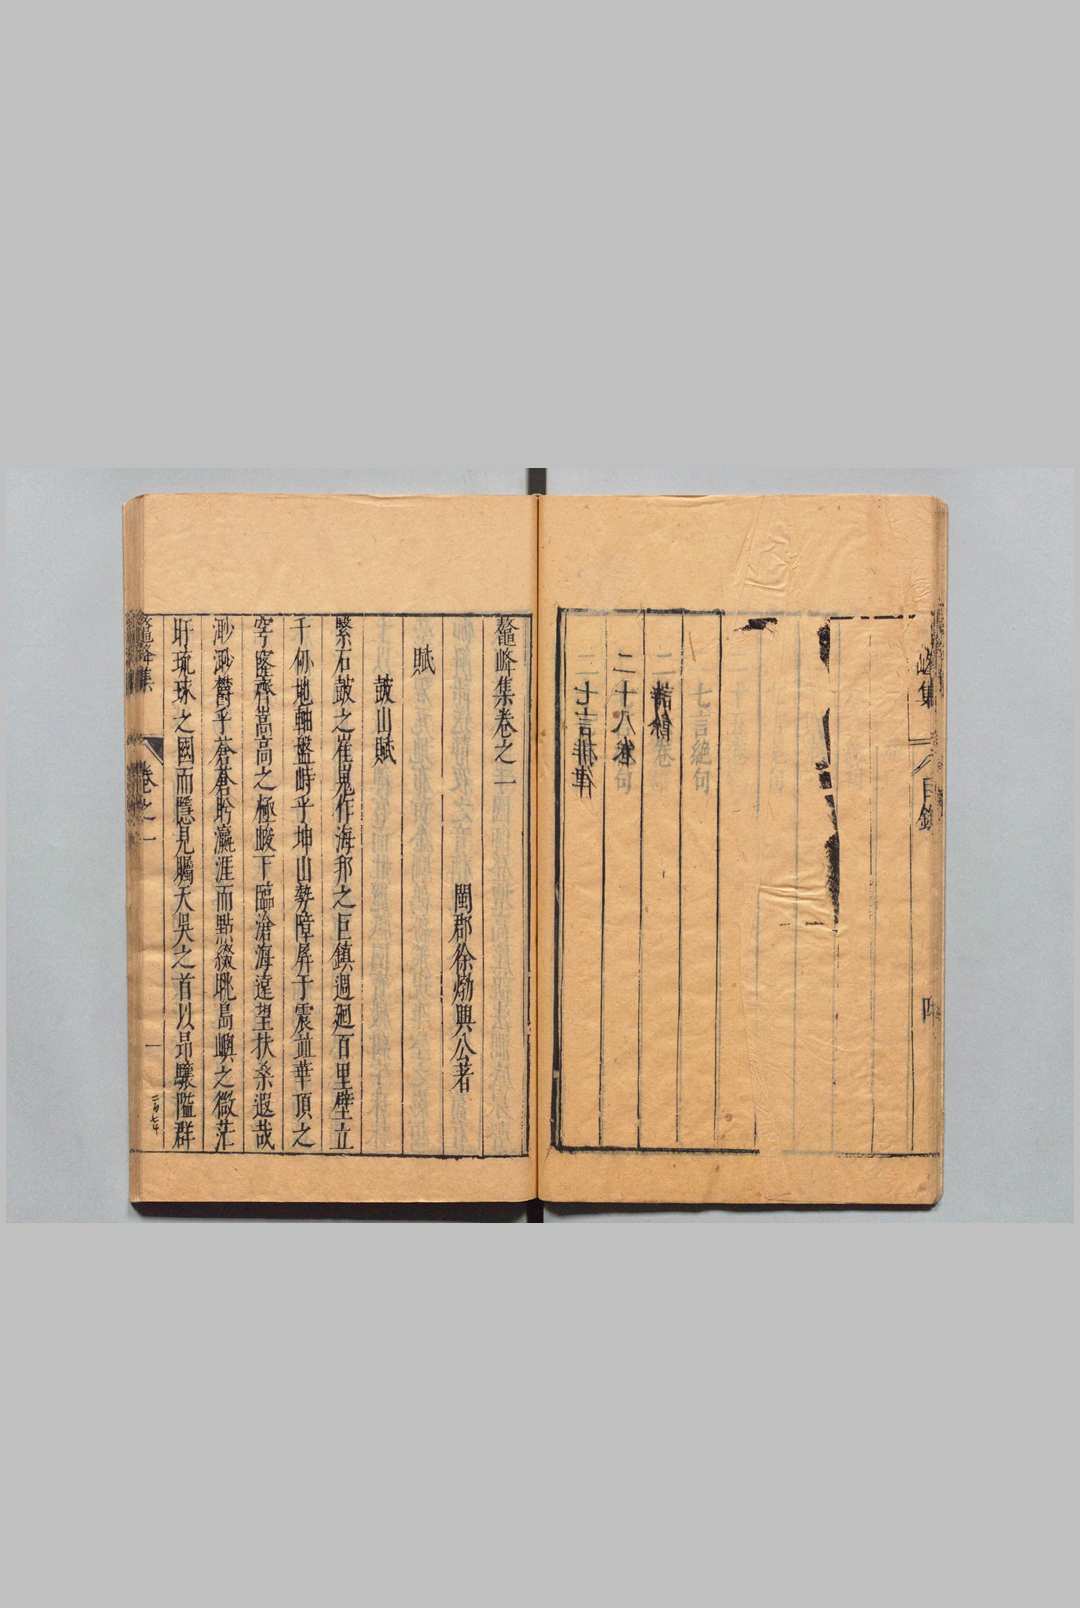 峰集
目錄
七言絕句
二十八卷
詩餘
七言排律
鼇峰集卷之一
閩郡徐𤊹興公著
賦
鼓山賦
繄石鼓之崔嵬作海邦之巨鎮週廻百里壁立
千仞地軸盤峙乎坤山勢障屏于震並華頂之
穹窿齊嵩高之極峻下臨滄海遠望扶桑遐哉
渺渺欝乎蒼蒼盻瀛涯而點綴眺島嶼之微茫
盱琉球之國而隱見矚天吳之首以昂驤隘群
鼇峰集
卷之一
一